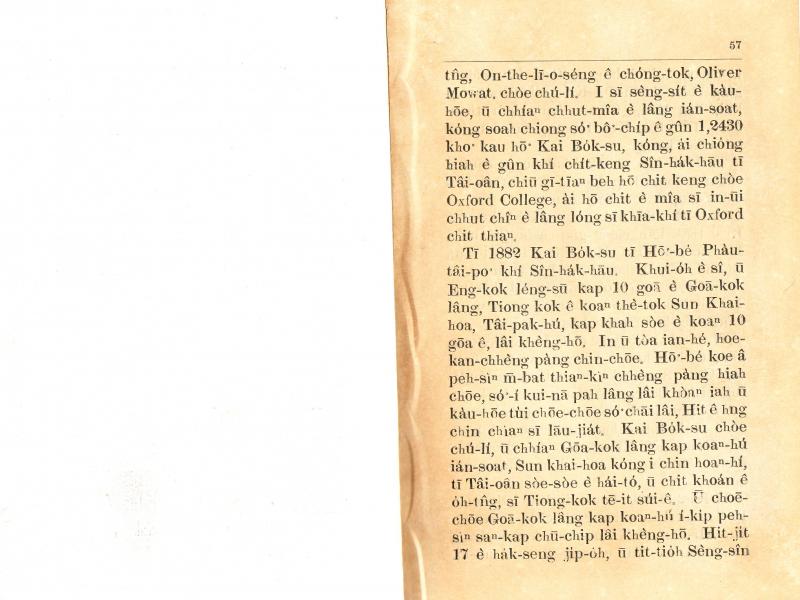 57
tn̂g, On-the-lī-o-séng ê chóng-tok, Oliver
Mowat. chòe chú-lí. I sī sèng-sít ê kàu-
hōe, ū chhíaⁿ chhut-mîa ê lâng ián-soat,
kóng soah chiong só͘ bô͘-chíp ê gûn 1,2430
kho͘ kau hō͘ Kai Bo̍k-su, kóng, ài chióng
hiah ê gûn khí chít-keng Sîn-ha̍k-hāu tī
Tâi-oân, chiū gī-tīaⁿ beh hō chit keng chòe
Oxford College, ài hō chit ê mîa sī in-ūi
chhut chîⁿ ê lâng lóng sī khīa-khí tī Oxford
chit thiaⁿ.
Tī 1882 Kai Bo̍k-su tī Hō͘-bé Phàu-
tâi-po͘ khí Sîn-ha̍k-hāu. Khui-o̍h ê sî, ū
Eng-kok léng-sū kap 10 goā ê Goā-kok
lâng, Tiong kok ê koaⁿ thê-tok Sun Khai-
hoa, Tâi-pak-hú, kap khah sòe ê koaⁿ 10
gōa ê, lâi khèng-hō. In ū tòa ian-hé, hoe-
kan-chhèng pàng chin-chōe. Hō͘-bé koe â
peh-sìⁿ m̄-bat thiaⁿ-kìⁿ chhèng pàng hiah
chōe, só͘-í kui-nā pah lâng lâi khòaⁿ iah ū
kàu-hōe tùi chōe-chōe só͘ chāi lâi, Hit ê hng
chin chìaⁿ sī lāu-jia̍t. Kai Bo̍k-su chòe
chú-lí, ū chhíaⁿ Gōa-kok lâng kap koaⁿ-hú
ián-soat, Sun khai-hoa kóng i chin hoaⁿ-hí,
tī Tâi-oân sòe-sòe ê hái-tó, ū chit khoán ê
o̍h-tn̂g, sī Tiong-kok tē-it súi-ê. Ū choē-
chōe Goā-kok lâng kap koaⁿ-hú í-kip peh-
sìⁿ saⁿ-kap chū-chip lâi khèng-hō. Hit-jit
17 ê ha̍k-seng ji̍p-o̍h, ū tit-tio̍h Sèng-sîn